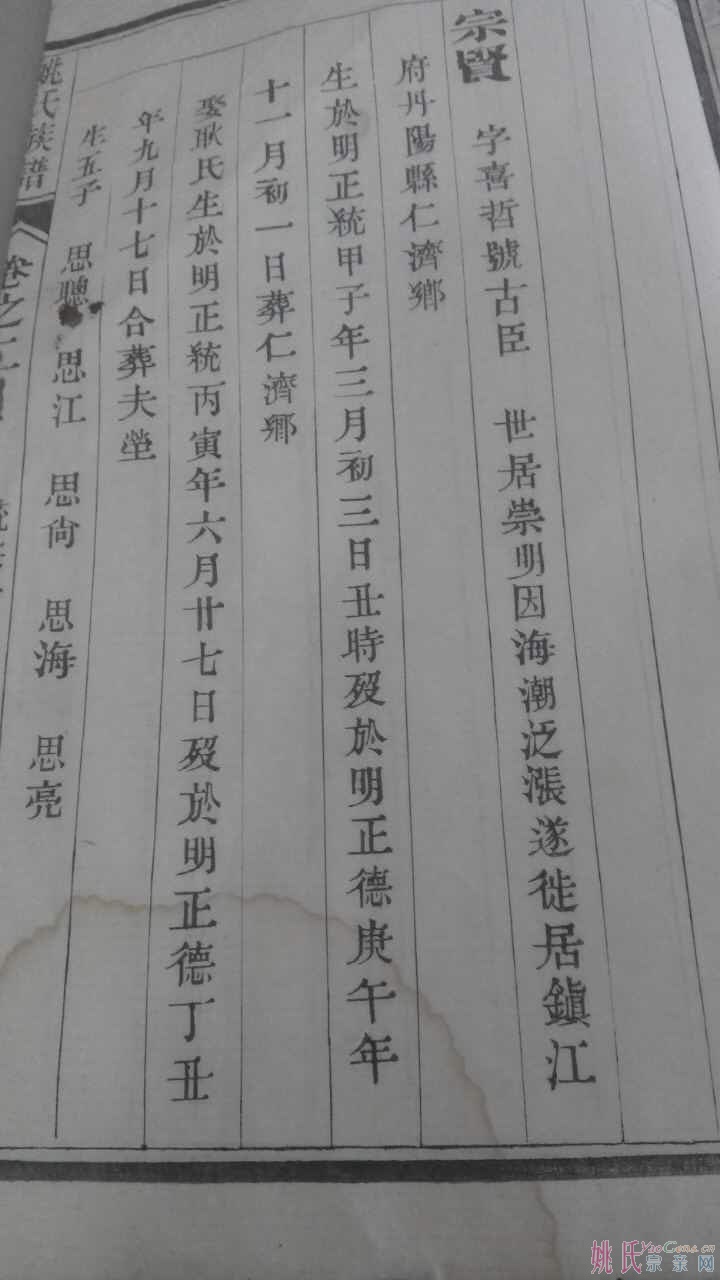 宗賢 字喜哲號古臣 世居崇明因海潮泛漲遂徙居鎮江
府丹陽縣仁濟鄉
生於明正統甲子年三月初三日丑時歿於明正德庚午年
十一月初一日葬仁濟鄉
娶耿氏生於明正統丙寅年六月廿七日歿於明正德丁丑
年九月十七日合葬夫塋
生五子 思聰 思江 思尙 思海 思亮
姚氏族譜 卷之
姚氏 YaoGens.cn
宗亲网